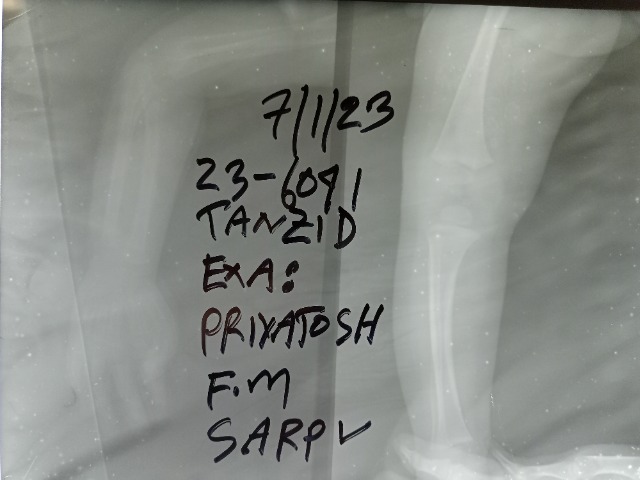 7/1/23
23-6091
TANZID
EXA:
PRIYATOSH
F.M
SARPV